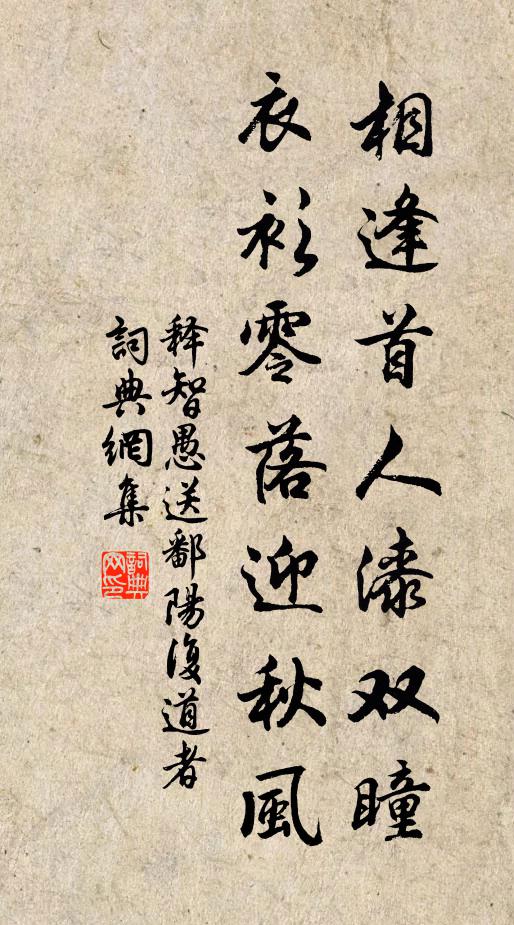 相逢首人漆双瞳
衣衫零落迎秋風
释智愚送鄱陽復道者
詞典網集
詞典網印